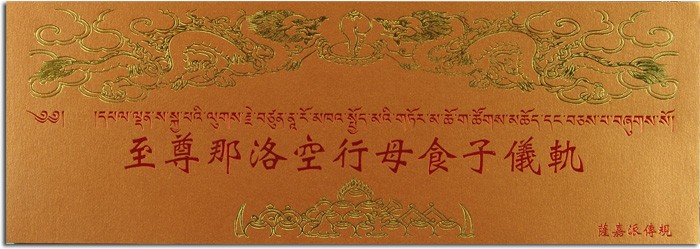 ༄༅། །དཔལ་ལྡན་ས་སྐྱ་པའི་ལུགས་རྗེ་བཙུན་ནཱ་རོ་མཁའ་སྤྱོད་མའི་གཏོར་མ་ཆོ་ག་ཚོགས་མཆོད་དང་བཅས་པ་བཞུགས་སོ།
至尊那洛空行母食子儀軌
薩嘉派傳規